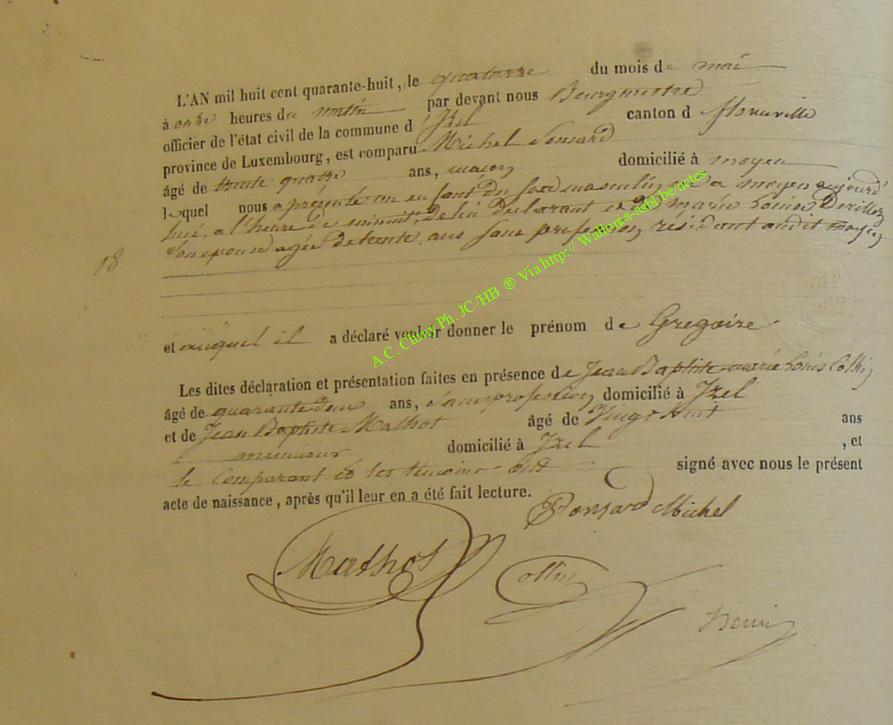 L'AN mil huit cent quarante-huit, le quatorze du mois de mai
à onze heures du matin par devant nous Bourgmestre
officier de l'état civil de la commune d'Izel canton d florenville
province de Luxembourg, est comparu Michel Ponsard
âgé de trente quatre ans, maçon domicilié à moyen
lequel nous a présenté un enfant du sexe masculin né a moyen aujourd'
hui, a l'heure de minuit, de lui déclarant et de marie Louise Devillez
son epouse agée de trente ans sans profession, résidant audit moyen
18
et auquel il a déclaré vouloir donner le prénom de Gregoire
Les dites déclaration et présentation faites en présence de Jean Baptiste marie Louis Collin
âgé de quarante deux ans, sans profession domicilié à Izel
et de Jean Baptiste Mathot âgé de vingt huit ans
domicilié à Izel, et
le comparant et les temoins ont signé avec nous le présent
acte de naissance, après qu'il leur en a été fait lecture.
Ponsard Michel
Mathot Collin
A.C. Chiny Ph. JC/HB ® Via http:// Wallonia-asbl.be/actes